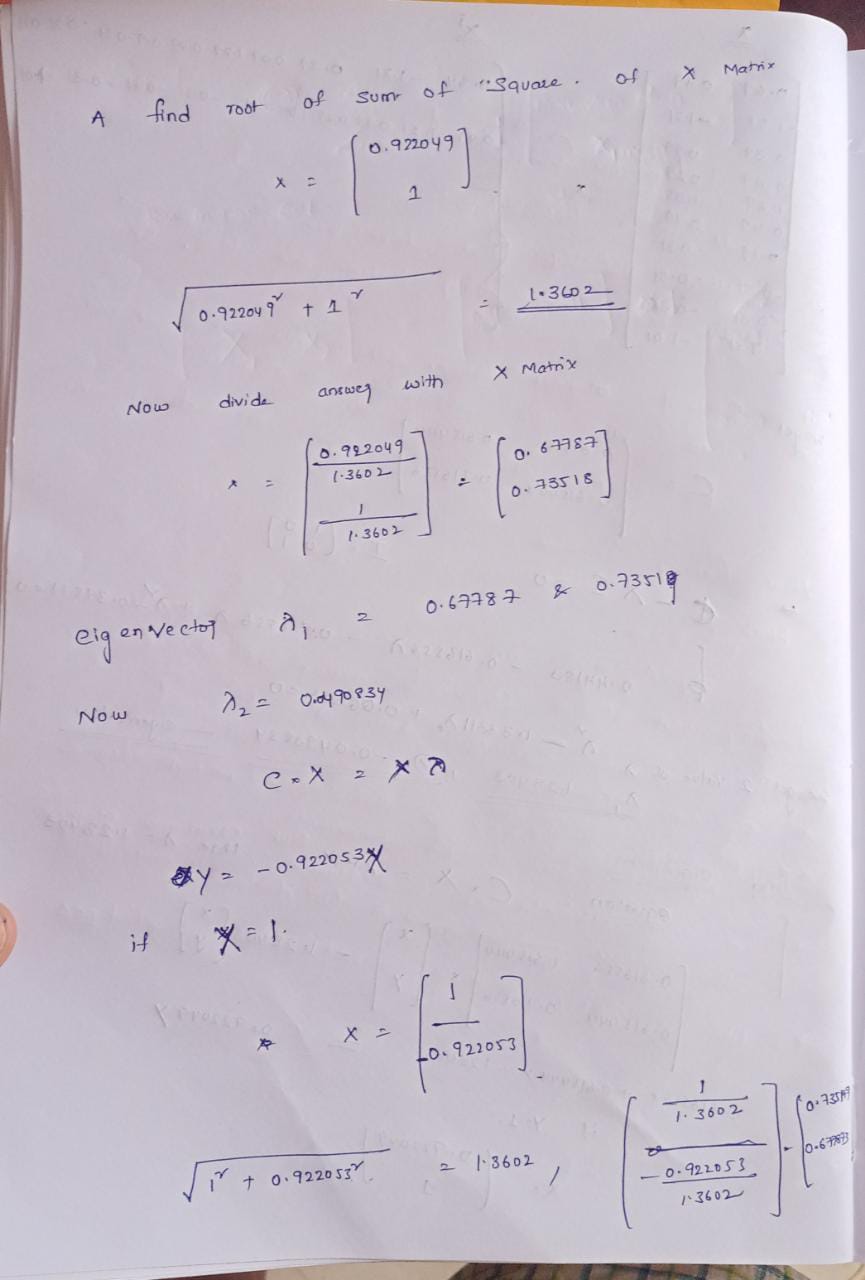 A find root of sum of "Square. of X Matrix
x = [ 0.922049
1 ]
√ 0.922049² + 1² = 1.3602
Now divide answer with X Matrix
x = [ 0.922049 / 1.3602
1 / 1.3602 ] = [ 0.67787
0.73518 ]
eigenvector λ₁ = 0.67787 & 0.73518
Now λ₂ = 0.0490834
C.X = X λ
Y = -0.922053X
if X = 1.
X = [ 1
-0.922053 ]
√ 1² + 0.922053² = 1.3602 , [ 1 / 1.3602
-0.922053 / 1.3602 ]